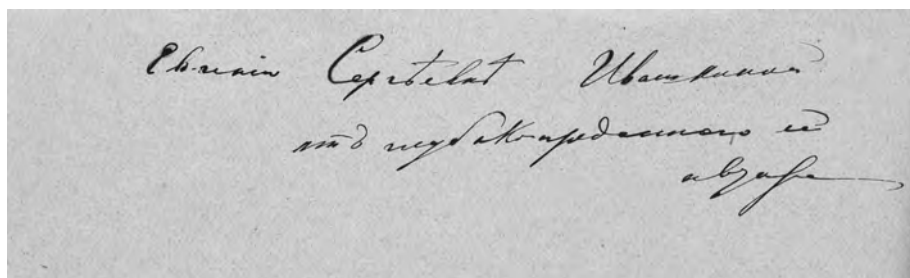 Евгеніи Сергѣевнѣ Ивашкиной
отъ глубоко-преданного ей
автора